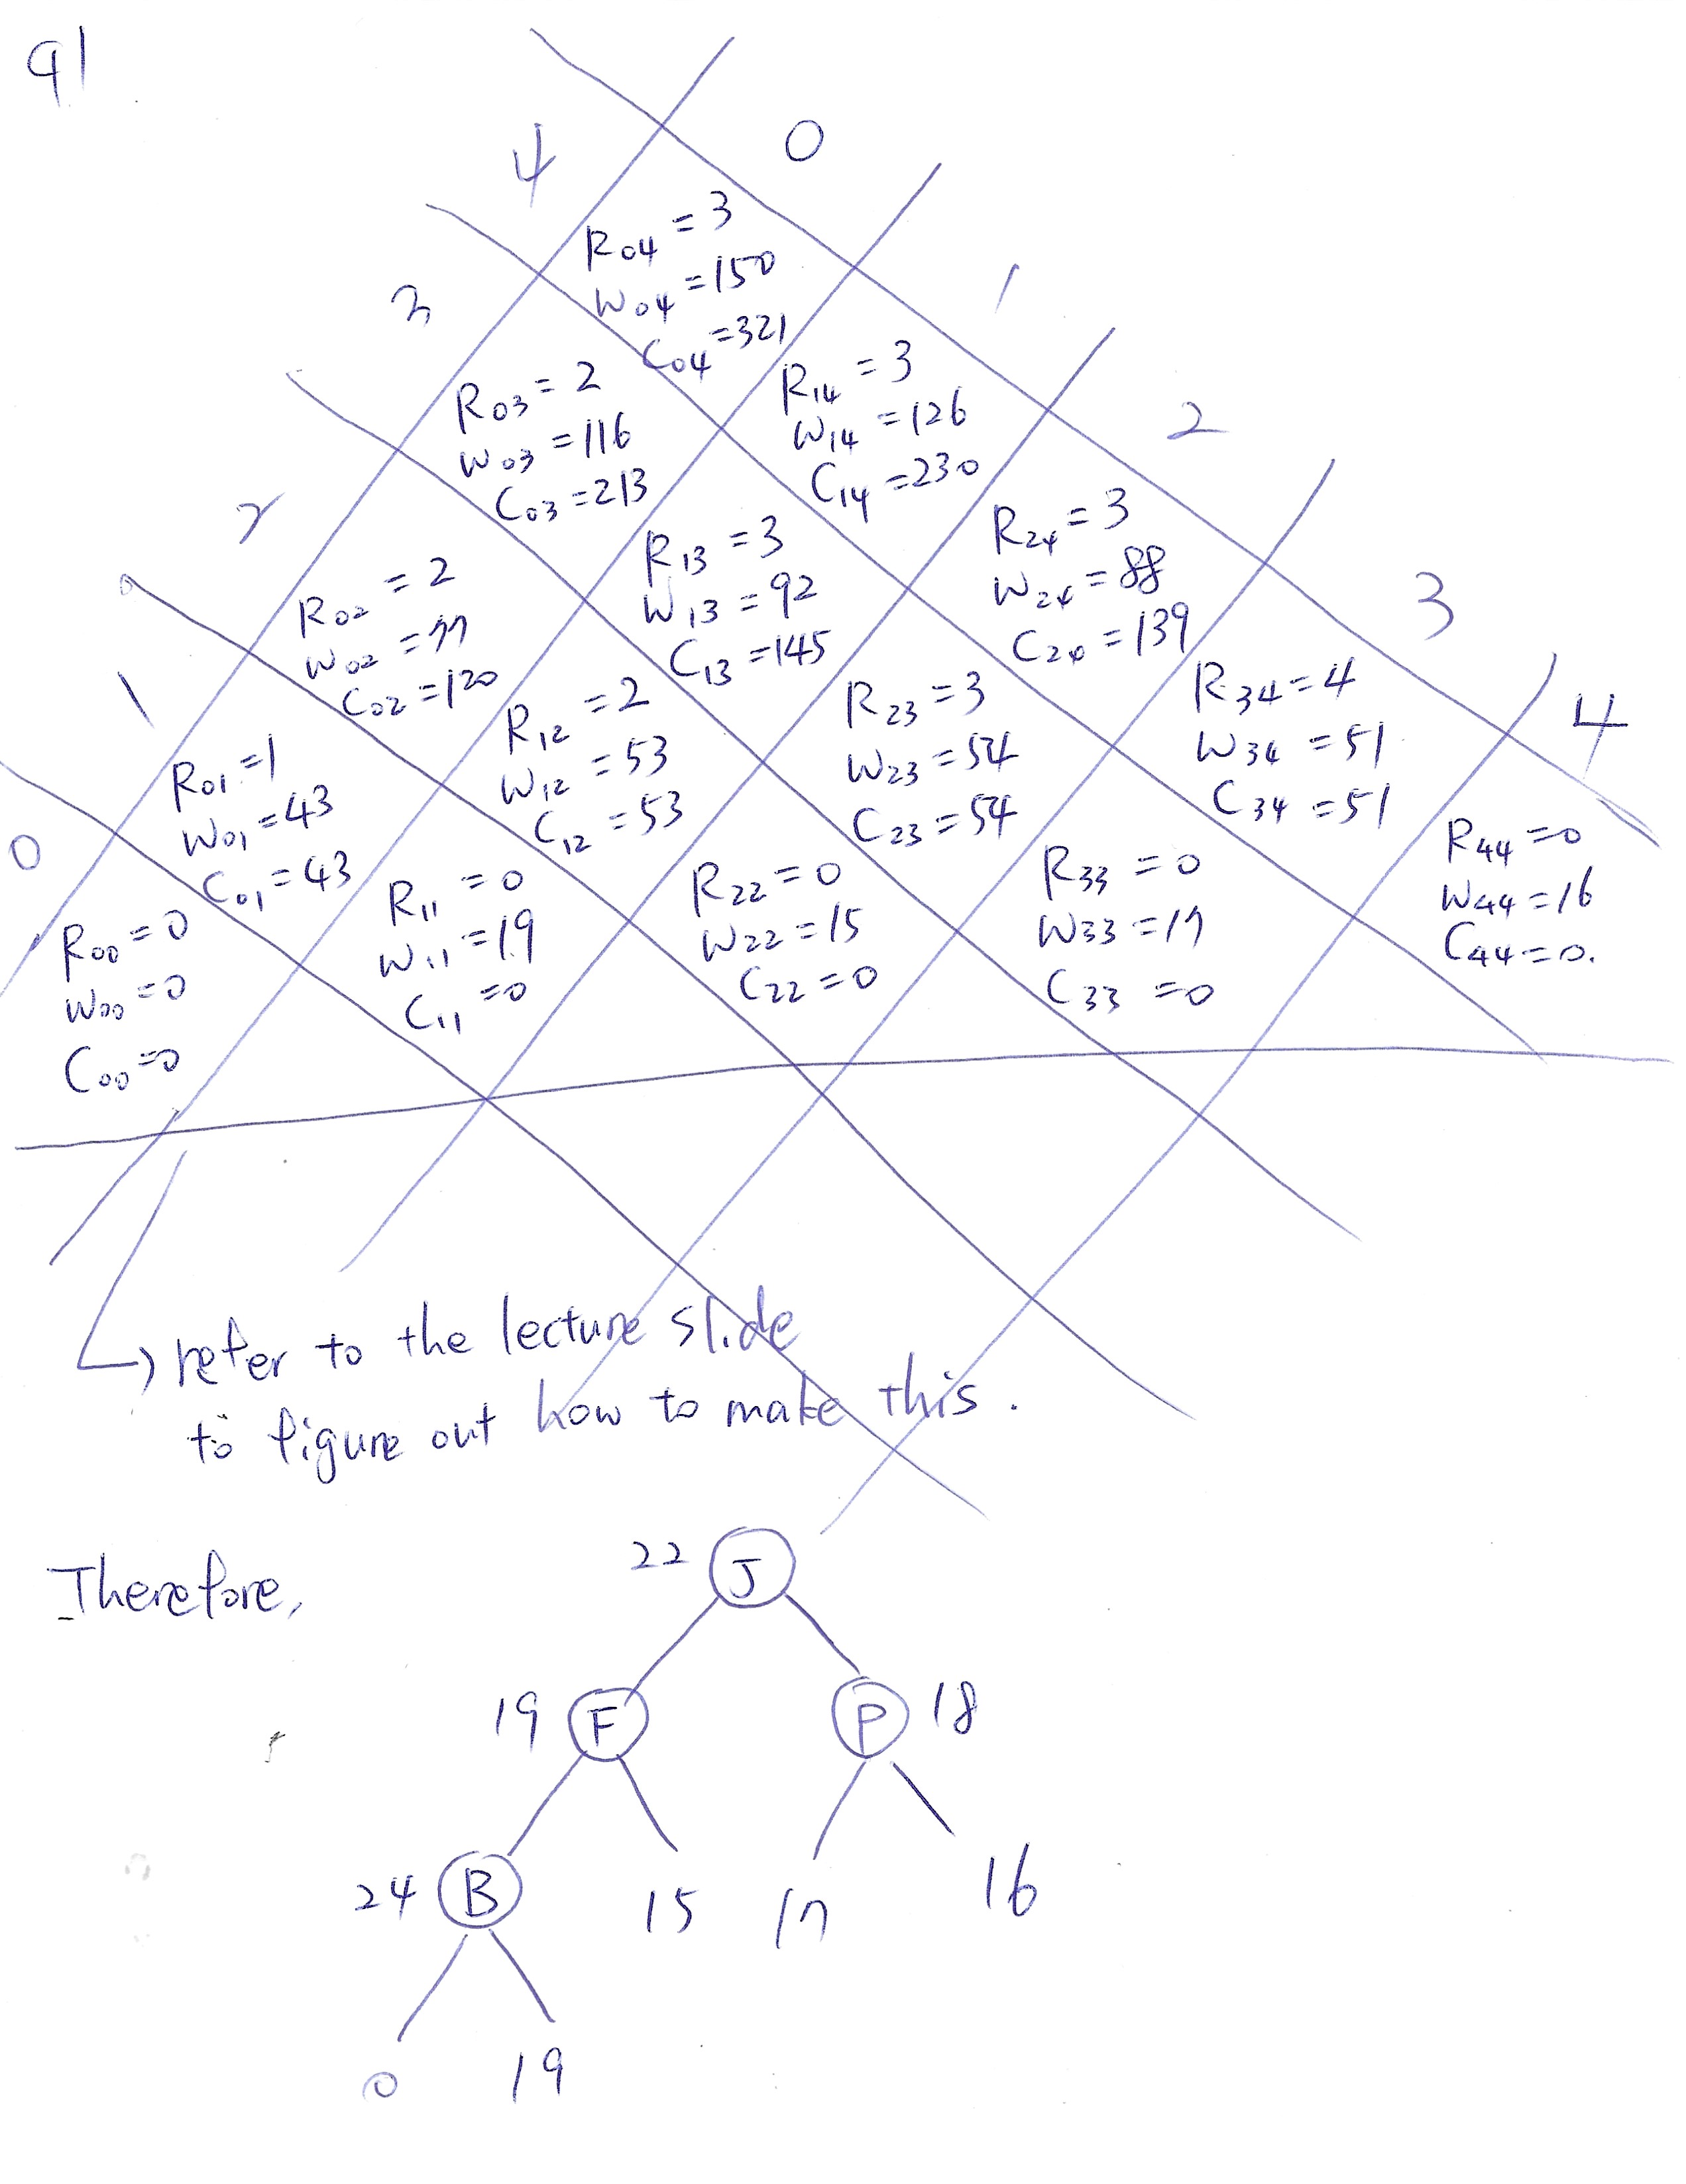 q1
4
0
3
R04 = 3
W04 = 150
C04 = 321
1
2
R03 = 2
W03 = 116
C03 = 213
R14 = 3
W14 = 126
C14 = 230
2
1
R02 = 2
W02 = 77
C02 = 120
R13 = 3
W13 = 92
C13 = 145
R24 = 3
W24 = 88
C24 = 139
3
0
R01 = 1
W01 = 43
C01 = 43
R12 = 2
W12 = 53
C12 = 53
R23 = 3
W23 = 54
C23 = 54
R34 = 4
W34 = 51
C34 = 51
4
R00 = 0
W00 = 0
C00 = 0
R11 = 0
W11 = 19
C11 = 0
R22 = 0
W22 = 15
C22 = 0
R33 = 0
W33 = 17
C33 = 0
R44 = 0
W44 = 16
C44 = 0.
refer to the lecture slide
to figure out how to make this.
Therefore,
22 J
19 F P 18
24 B 15 17 16
0 19